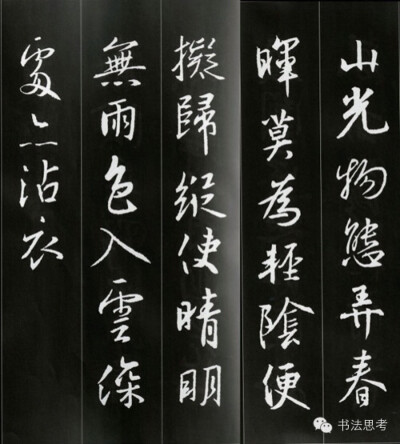 山光物態弄春
暉莫為輕陰便
擬歸縱使晴明
無雨色入雲深
處亦沾衣
书法思考